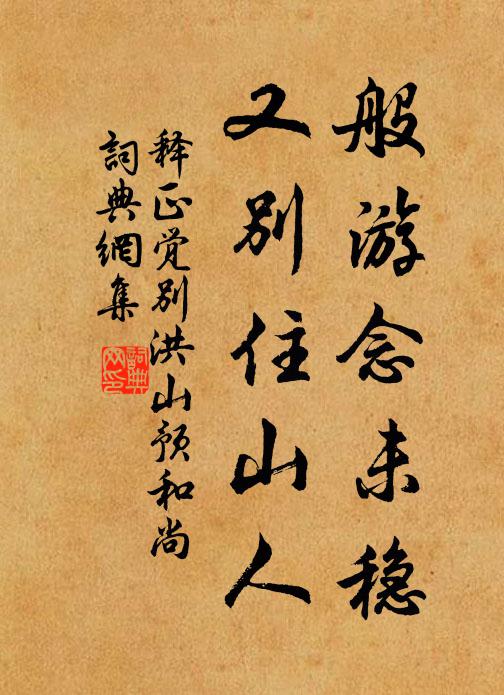 般游念未稳
又别住山人
释正觉别洪山预和尚
詞典網集
詞典网印